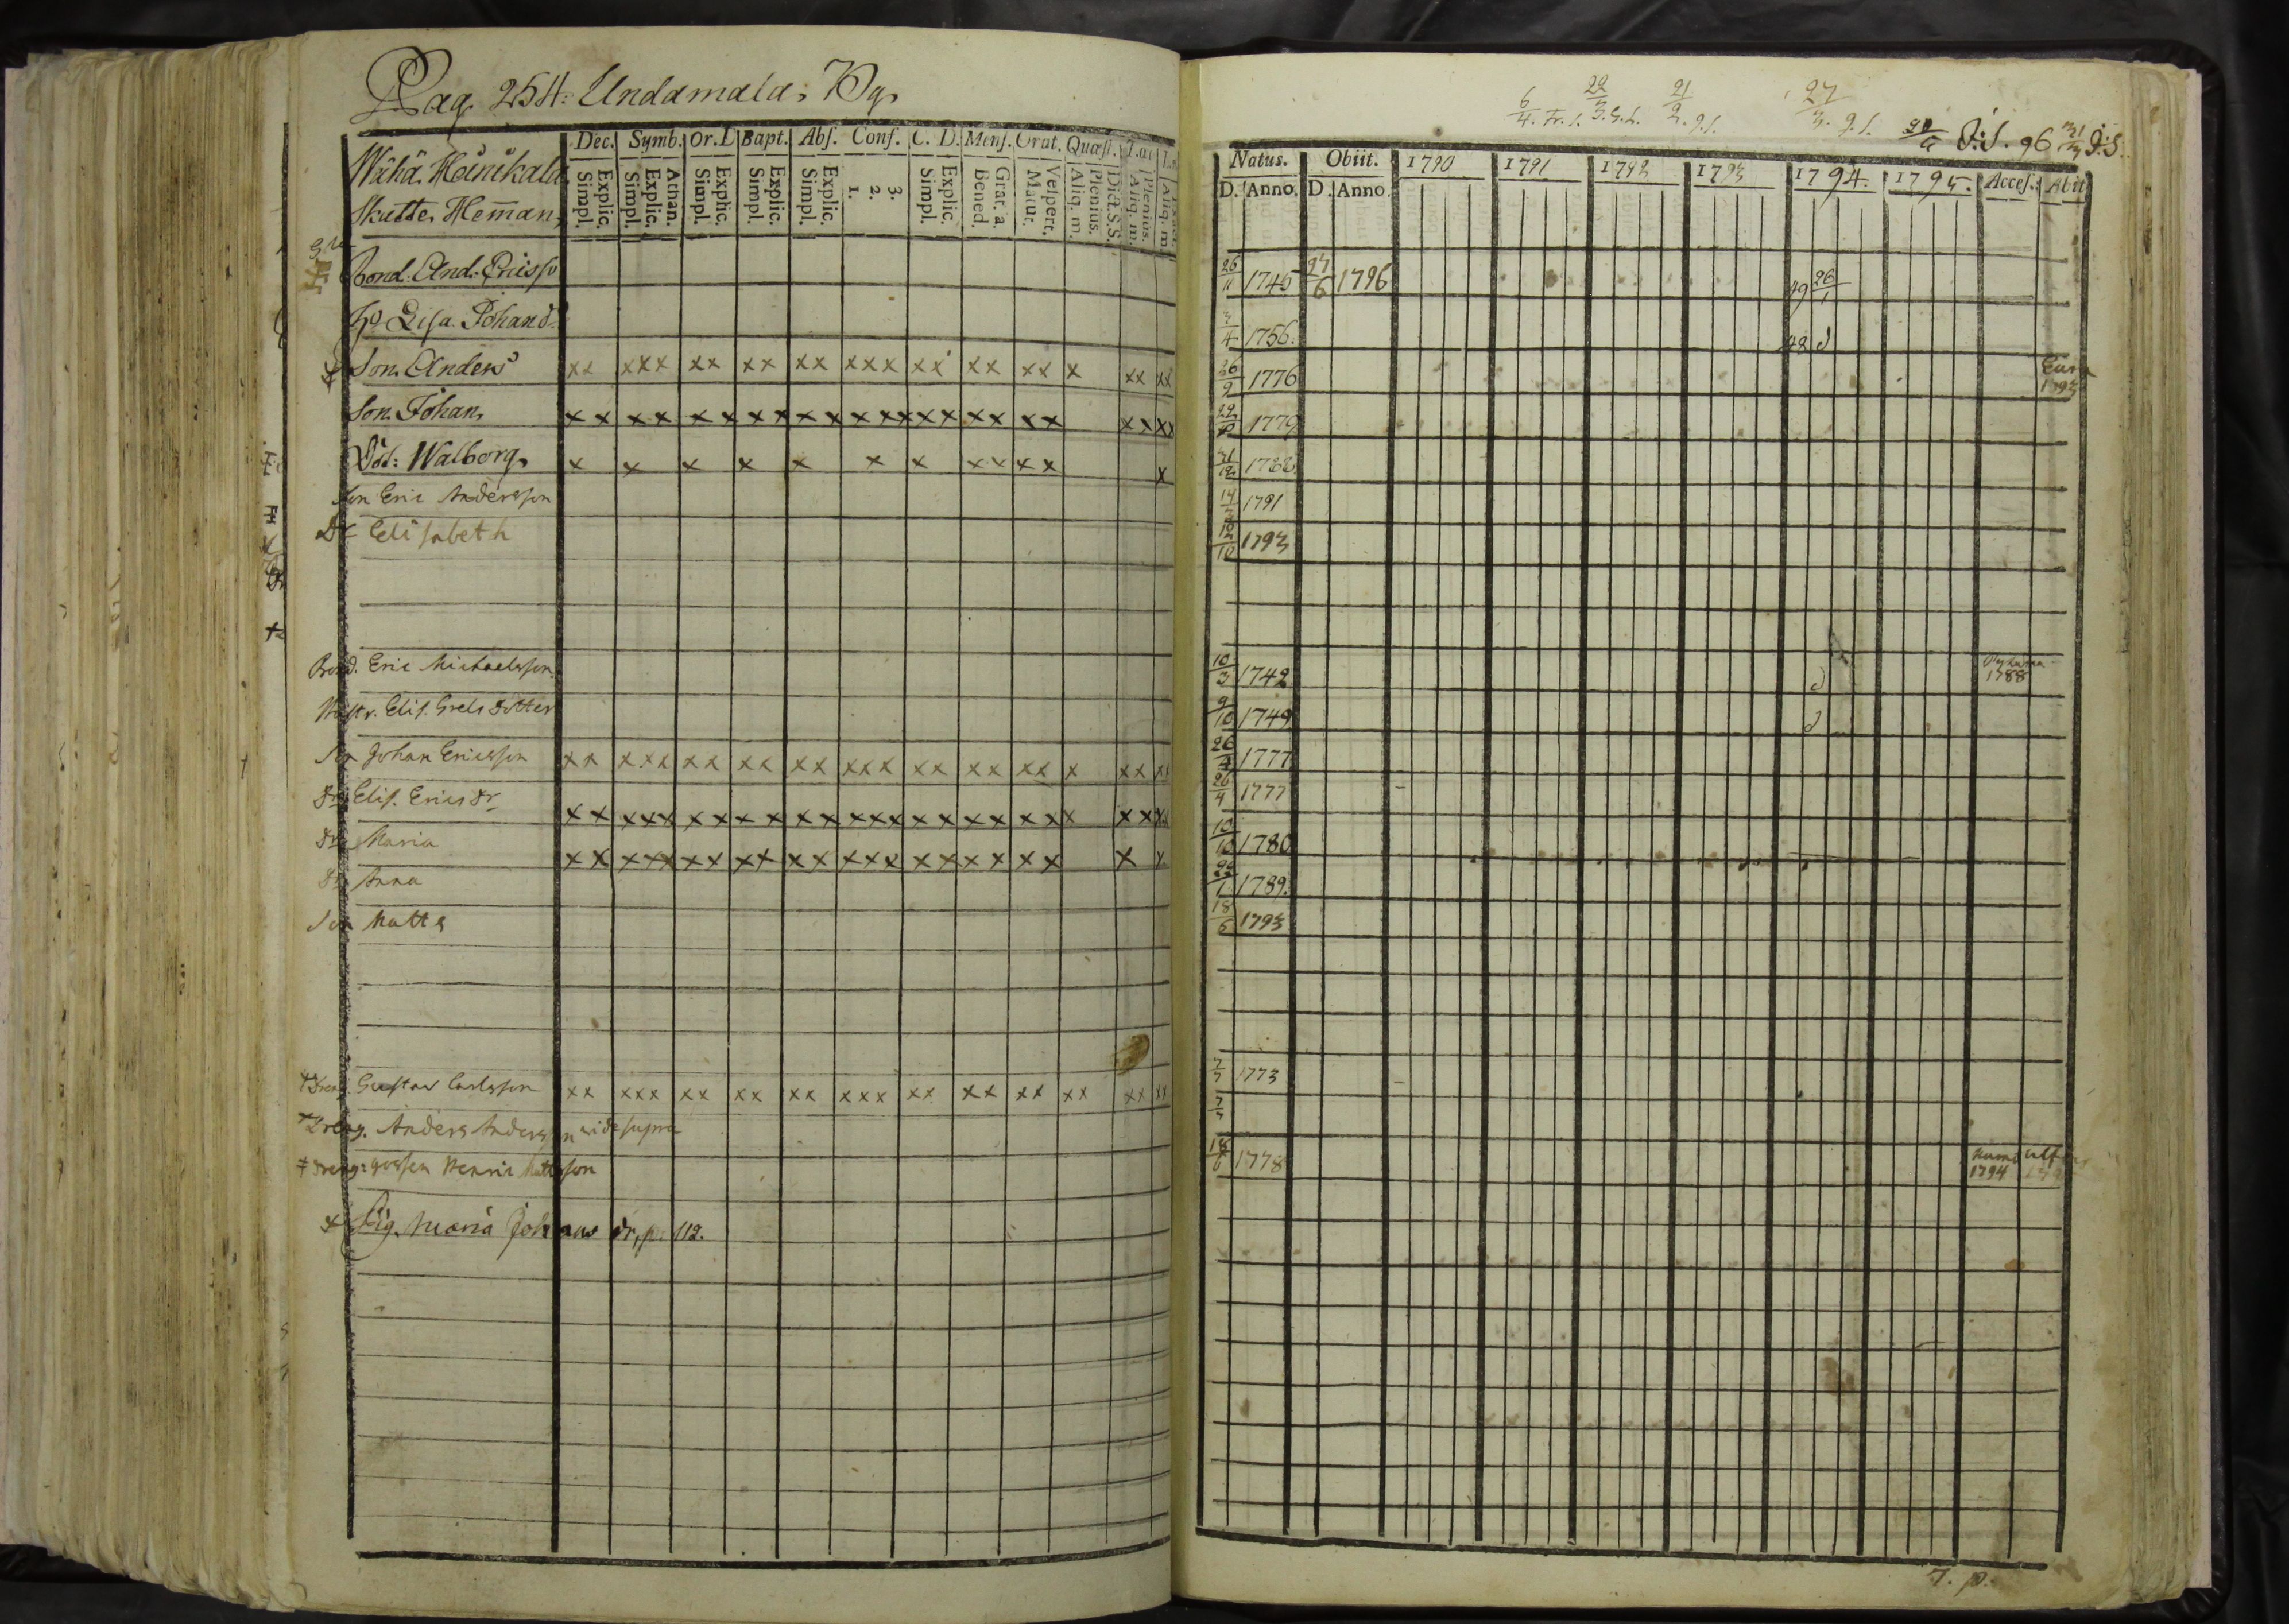 Pag. 254. Undamala. By.
Wähä. Heinikala
Skatte. Hem̄an.
Dec. Symb. Or. D Bapt. Abs. Conf. C. D. Mens. Orat. Quæst.
Explic. Simpl. Athan. Explic. Simpl. Explic. Simpl. Explic. Simpl. Explic. Simpl. 3. 2. 1. Explic. Simpl. Grat. a. Bened. Vespert. Matut. Dia. S.S. Plenius. Aliq. m. Plenius. Aliq. m. Aliq. m.
Bond. And. Ericss
H. Lisa. Johansd.
Son. Anders xx xxx xx xx xx xxx xx xx xx x xx xx
Son. Johan xx xx xx xx xx xxx xx xx xx xx xx
Dot: Walborg x x x x x x x xx xx x
Son Eric Andersson
Dr Elisabeth
Bond. Eric Michaelsson
Hustr. Elis. Grels dotter
Son Johan Ericsson xx xxx xx xx xx xxx xx xx xx x xx xx
Dr Elis. Ericsdr xx xxx xx xx xx xxx xx xx xx x xx xx
Dr Maria xx xxx xx xx xx xxx xx xx xx x x
Dr Anna
Son Matts
Dreng. Gustav Carlsson xx xxx xx xx xx xxx xx xx xx xx xx xx
Dreng. Anders Andersson vide supra
Dreng: gossen Henric Mattsson
Pig. Maria Johans dr, p. 112.
6/4. Fr. s. 22/3. G. s. 21/2. g. s. 27/3. g. s. J. S. 96 31/3 J. S.
Natus. Obiit. 1790 1791 1792 1793 1794. 1795. Acces. Abit
D. Anno. D. Anno
26/11 1745 27/6 1796 49 26/1
3/4 1756. 48 d
26/9 1776 Eura 1793
1779
31/12 1788
1791
1793
10/3 1742 d 1788
9/10 1749 d
26/4 1777
26/4 1777
10/10 1780
22/1 1789.
18/6 1793
7/7 1773
18/6 1778 1794
7. p.